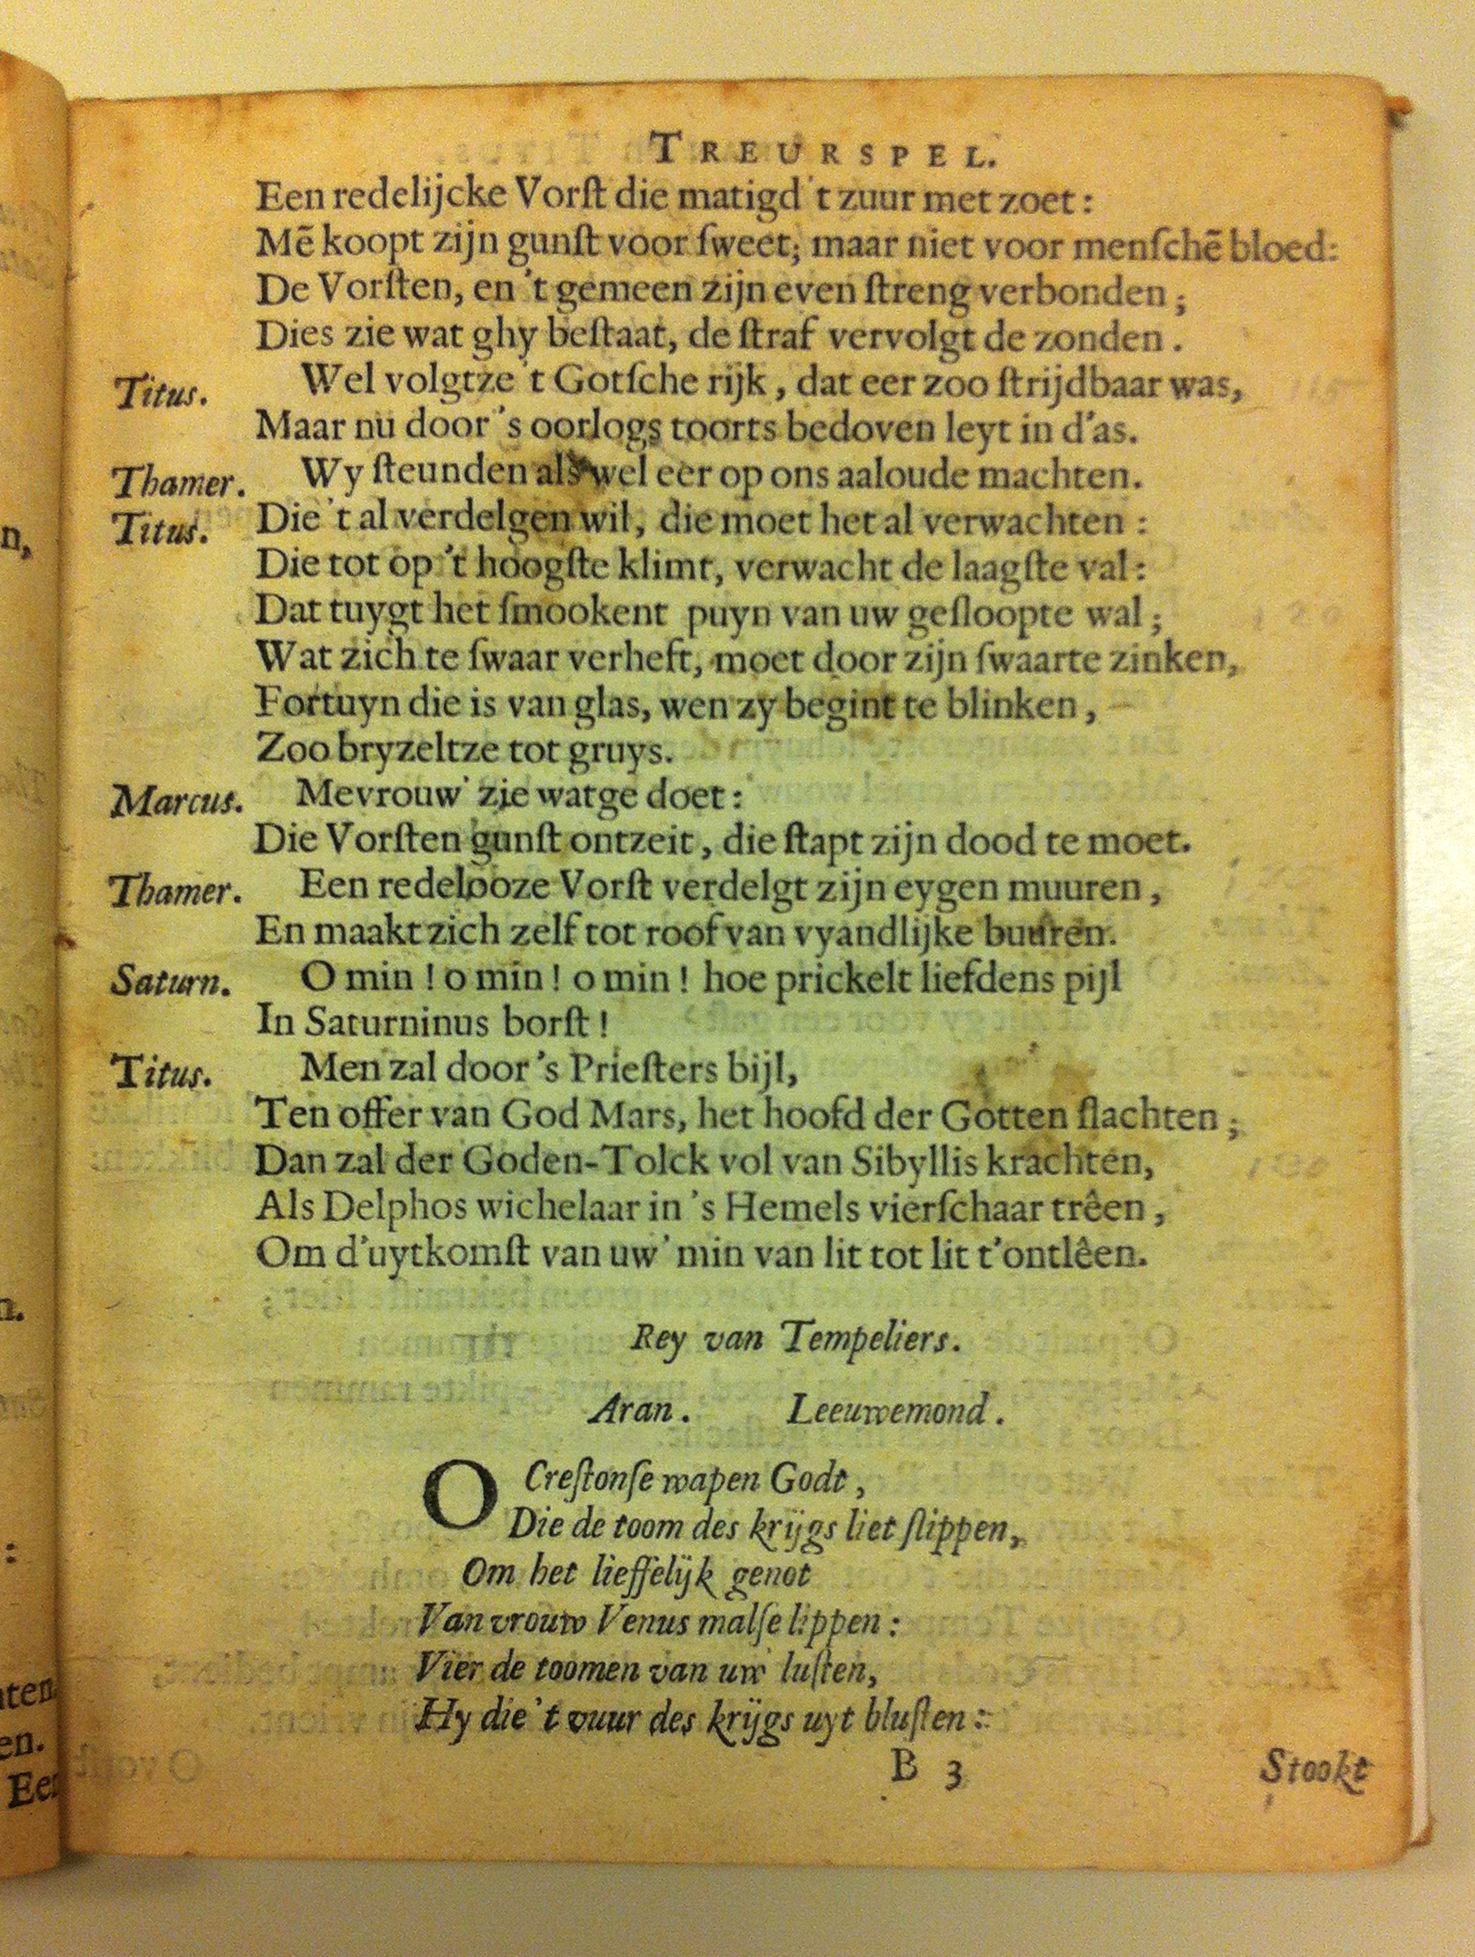 TREURSPEL.
Een redelijcke Vorſt die matigd 't zuur met zoet:
Mē koopt zijn gunſt voor ſweet; maar niet voor menſchē bloed:
De Vorſten, en 't gemeen zijn even ſtreng verbonden;
Dies zie wat ghy beſtaat, de ſtraf vervolgt de zonden.
Titus. Wel volgtze 't Gotſche rijk, dat eer zoo ſtrijdbaar was,
Maar nu door 's oorlogs toorts bedoven leyt in d'as.
Thamer. Wy ſteunden als wel eer op ons aaloude machten.
Titus. Die 't al verdelgen wil, die moet het al verwachten:
Die tot op 't hoogſte klimt, verwacht de laagſte val:
Dat tuygt het ſmookent puyn van uw geſloopte wal;
Wat zich te ſwaar verheft, moet door zijn ſwaarte zinken,
Fortuyn die is van glas, wen zy begint te blinken,
Zoo bryzeltze tot gruys.
Marcus. Mevrouw' zie watge doet:
Die Vorſten gunſt ontzeit, die ſtapt zijn dood te moet.
Thamer. Een redelooze Vorſt verdelgt zijn eygen muuren,
En maakt zich zelf tot roof van vyandlijke buuren.
Saturn. O min! o min! o min! hoe prickelt liefdens pijl
In Saturninus borſt!
Titus. Men zal door 's Prieſters bijl,
Ten offer van God Mars, het hoofd der Gotten ſlachten;
Dan zal der Goden-Tolck vol van Sibyllis krachten,
Als Delphos wichelaar in 's Hemels vierſchaar trêen,
Om d'uytkomſt van uw' min van lit tot lit t'ontlêen.
Rey van Tempeliers.
Aran. Leeuwemond.
O Creſtonſe wapen Godt,
Die de toom des krijgs liet ſlippen,
Om het lieffelijk genot
Van vrouw Venus malſe lippen:
Vier de toomen van uw' luſten,
Hy die 't vuur des krijgs uyt bluſten:
B 3
Stookt
n,
n.
:
ten
en.
Een